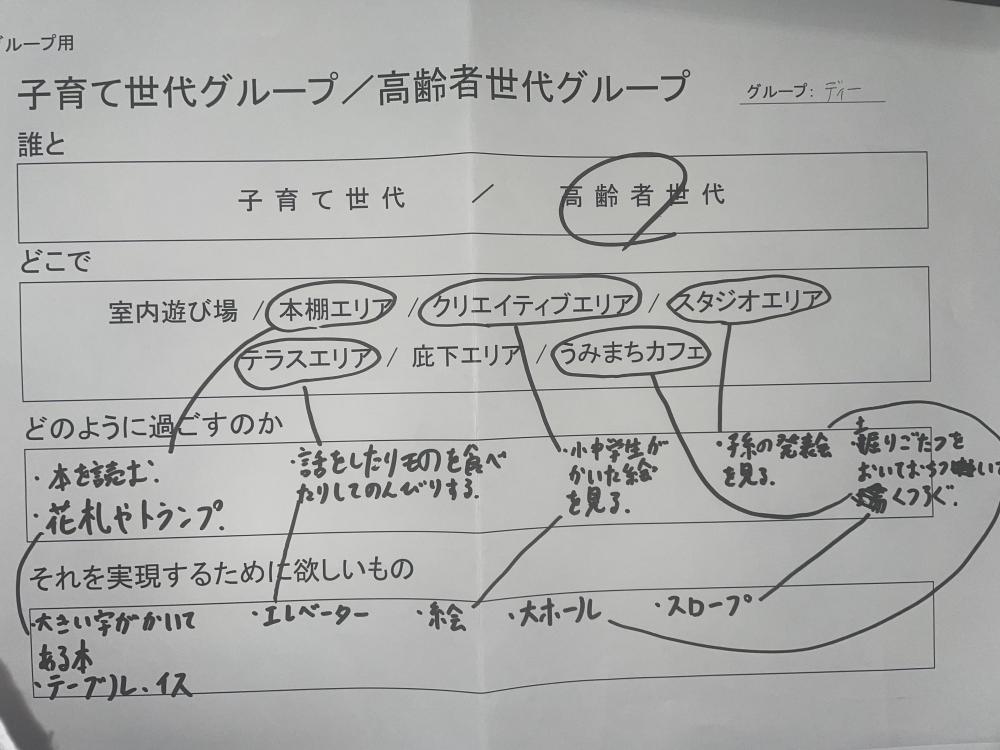 グループ用
子育て世代グループ／高齢者世代グループ
グループ: ディー
誰と
子育て世代 ／ 高齢者世代
どこで
室内遊び場 / 本棚エリア / クリエイティブエリア / スタジオエリア
テラスエリア / 庇下エリア / うみまちカフェ
どのように過ごすのか
・本を読む.
・花札やトランプ.
・話をしたりものを食べ
たりしてのんびりする.
・小中学生が
かいた絵
を見る.
・子孫の発表会
を見る.
・掘りごたつを
おいておちついて
くつろぐ.
それを実現するために欲しいもの
・大きい字がかいて
ある本
・テーブル・イス
・エレベーター
・絵
・大ホール
・スロープ